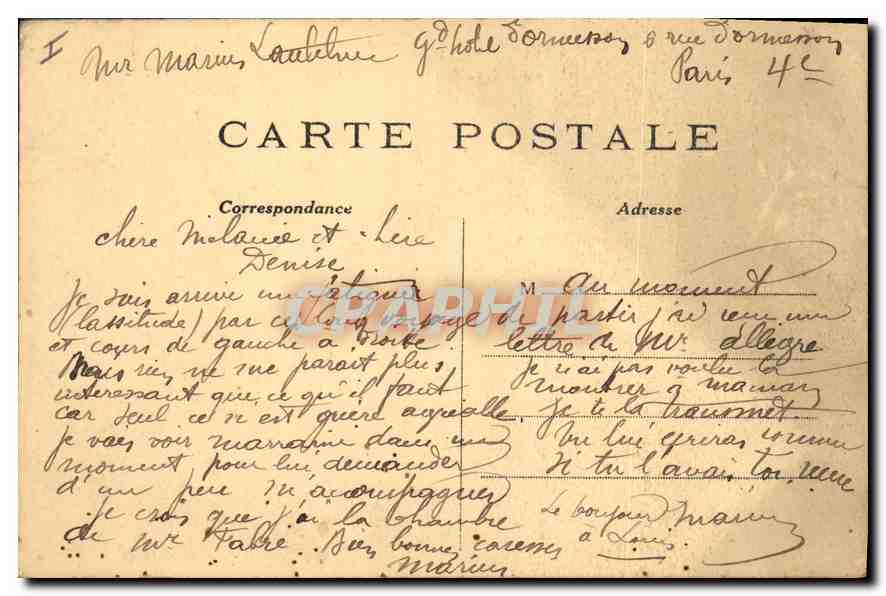 I
Mr Marius gd hotel d'ormesson 6 rue d'ormesson
Paris 4e
CARTE POSTALE
Correspondance
Adresse
chère Mélanie et chère
Denise
Je suis arrivé un fatigué
(lassitude) par ce long voyage
et cours de gauche à droite
Mais rien ne me parait plus
interessant que ce qu'il faut
car seul ce n'est guère agréable
Je vais voir marraine dans un
moment pour lui demander
d'un peu m'accompagner
Je crois que j'ai la chambre
de Mr Fabre. Bien bonnes caresses
Marius
M au moment
de partir j'ai reçu une
lettre de Mr allègre
Je n'ai pas voulu la
montrer a maman
Je te la transmet.
tu lui ecriras comme
si tu l'avais toi, reçue
Le bonjour Marius
à Louis
CPAPHIL